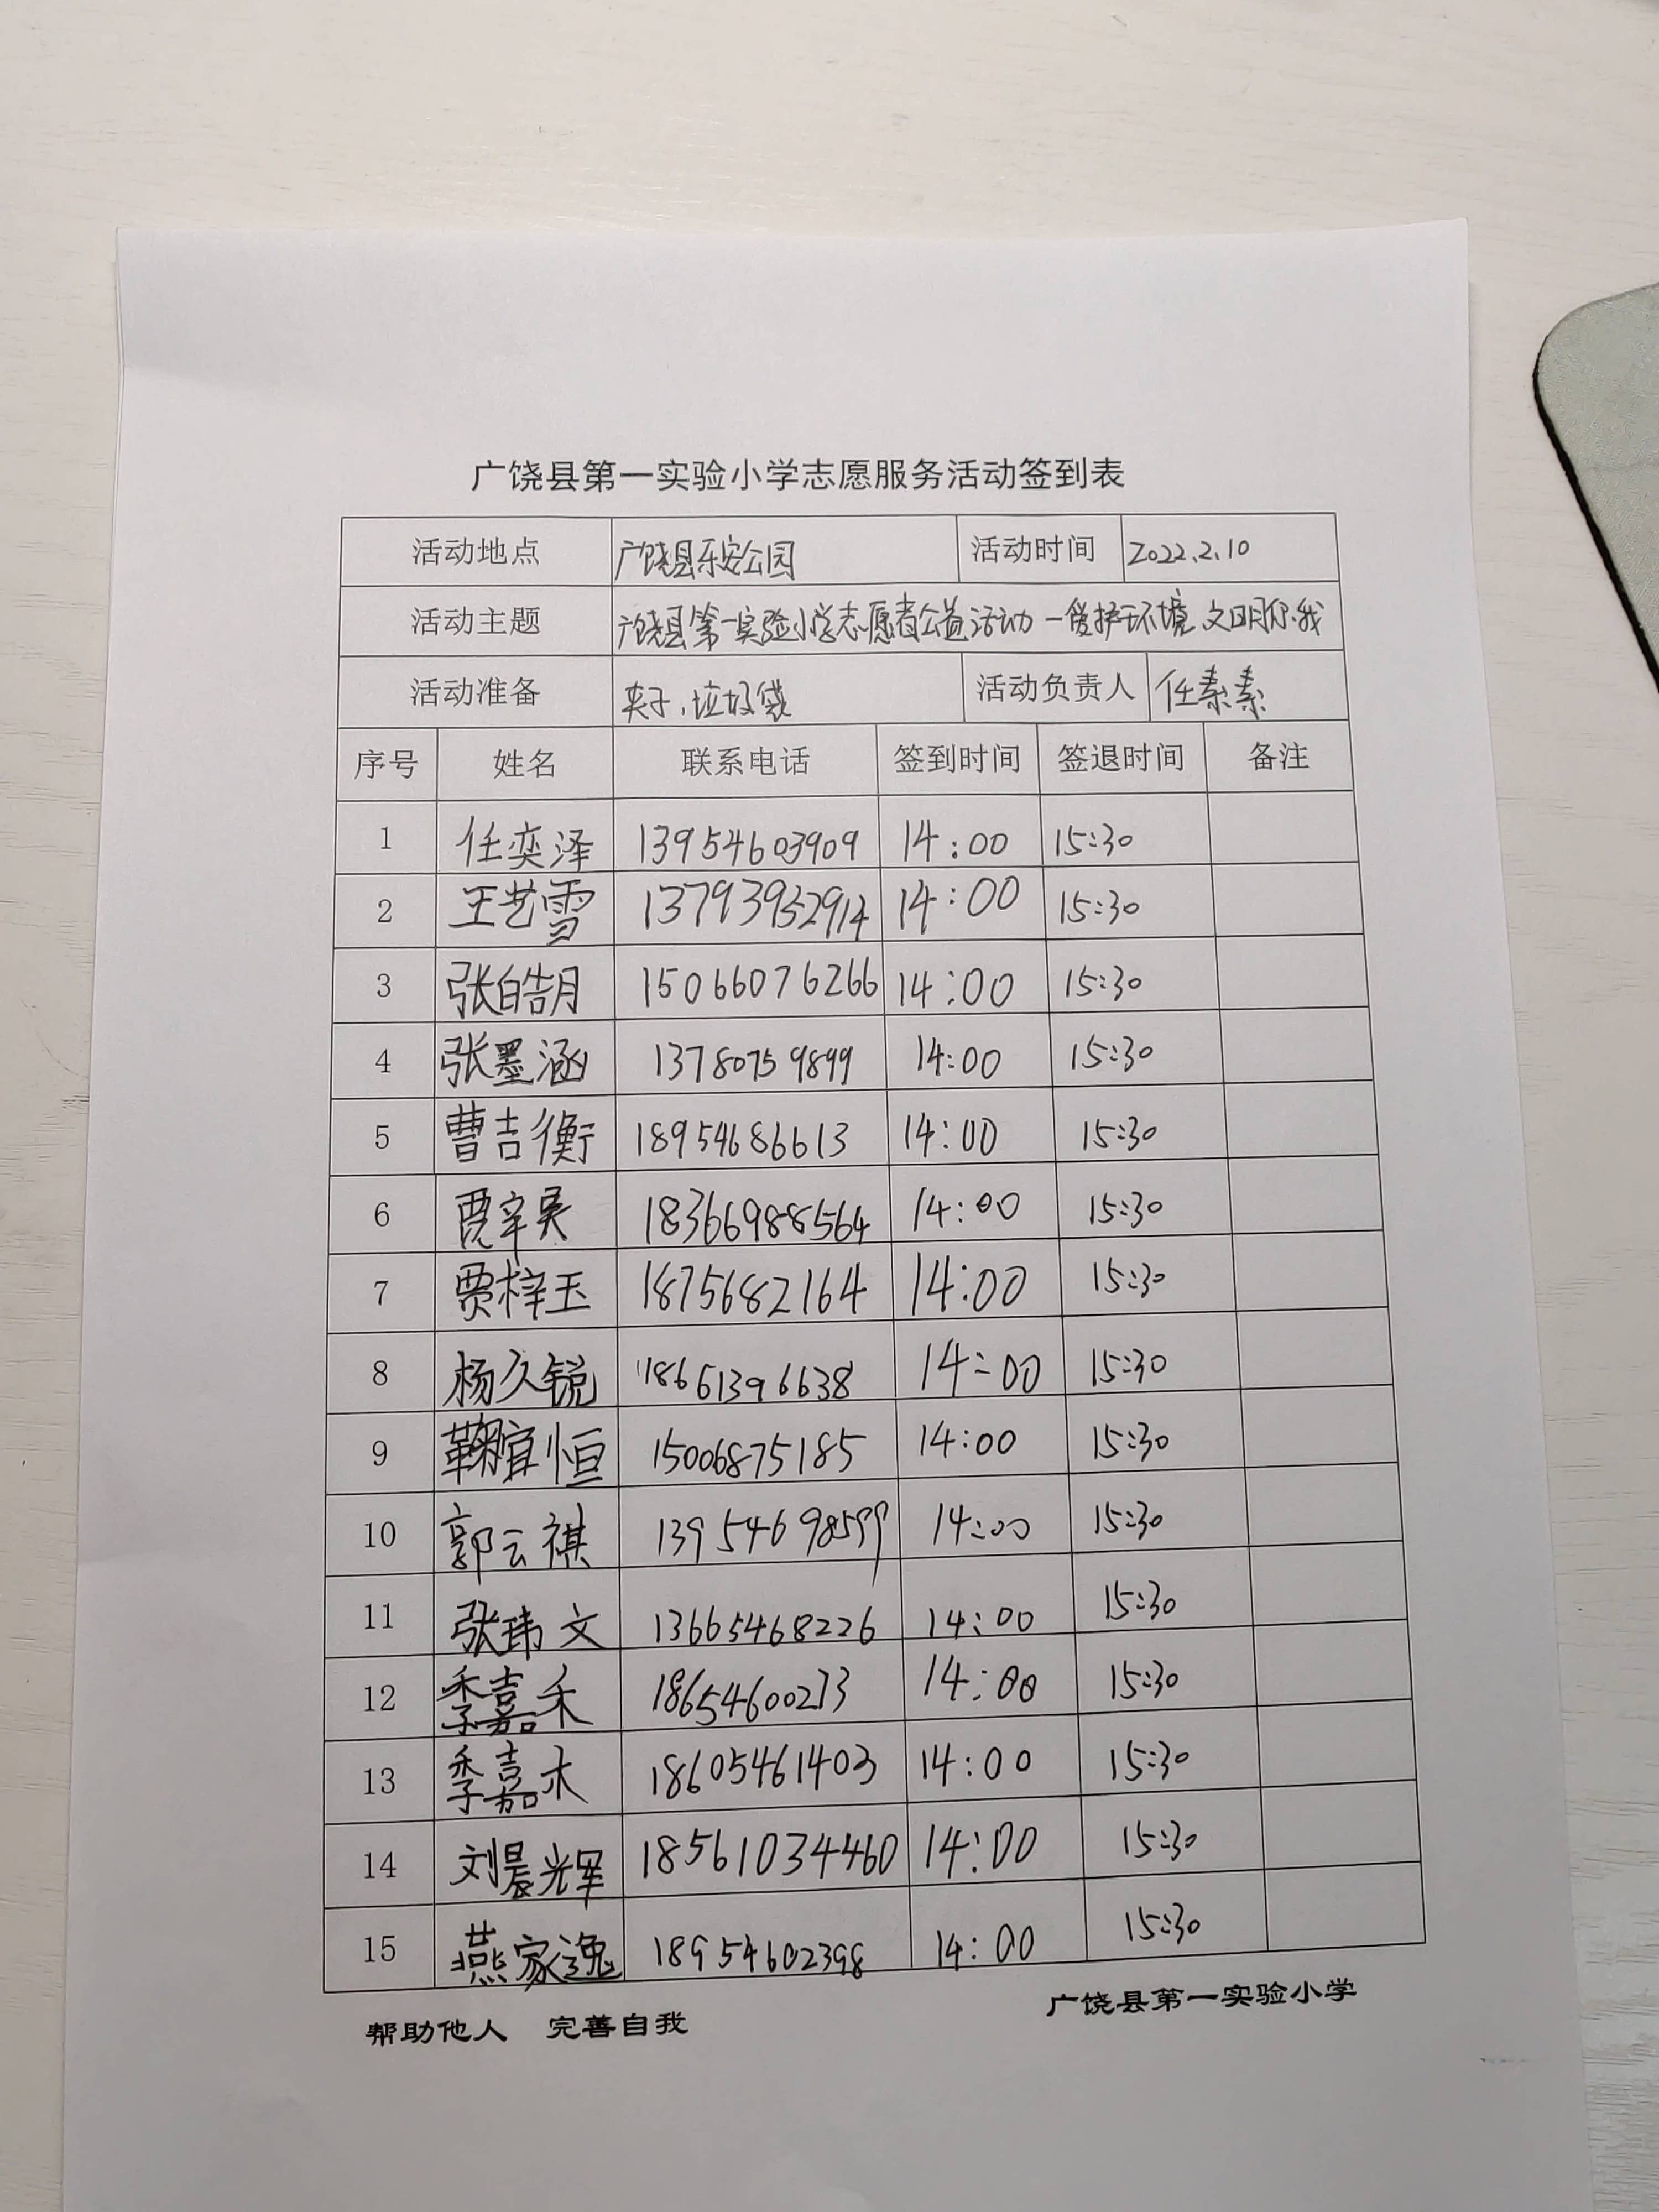 广饶县第一实验小学志愿服务活动签到表
活动地点 广饶县乐安公园 活动时间 2022.2.10
活动主题 广饶县第一实验小学志愿者公益活动—爱护环境 文明你我
活动准备 夹子、垃圾袋 活动负责人 任素素
序号 姓名 联系电话 签到时间 签退时间 备注
1 任奕泽 13954603909 14:00 15:30
2 王艺雪 13793932914 14:00 15:30
3 张皓月 15066076266 14:00 15:30
4 张墨涵 13780759899 14:00 15:30
5 曹吉衡 18954686613 14:00 15:30
6 贾辛昊 18366988564 14:00 15:30
7 贾梓玉 1875682164 14:00 15:30
8 杨久锐 18661396638 14:00 15:30
9 鞠宜恒 15006875185 14:00 15:30
10 郭云祺 13954698599 14:00 15:30
11 张玮文 13665468226 14:00 15:30
12 季嘉禾 18654600273 14:00 15:30
13 季嘉木 18605461403 14:00 15:30
14 刘晨辉 18561034460 14:00 15:30
15 燕家逸 18954602398 14:00 15:30
帮助他人 完善自我 广饶县第一实验小学